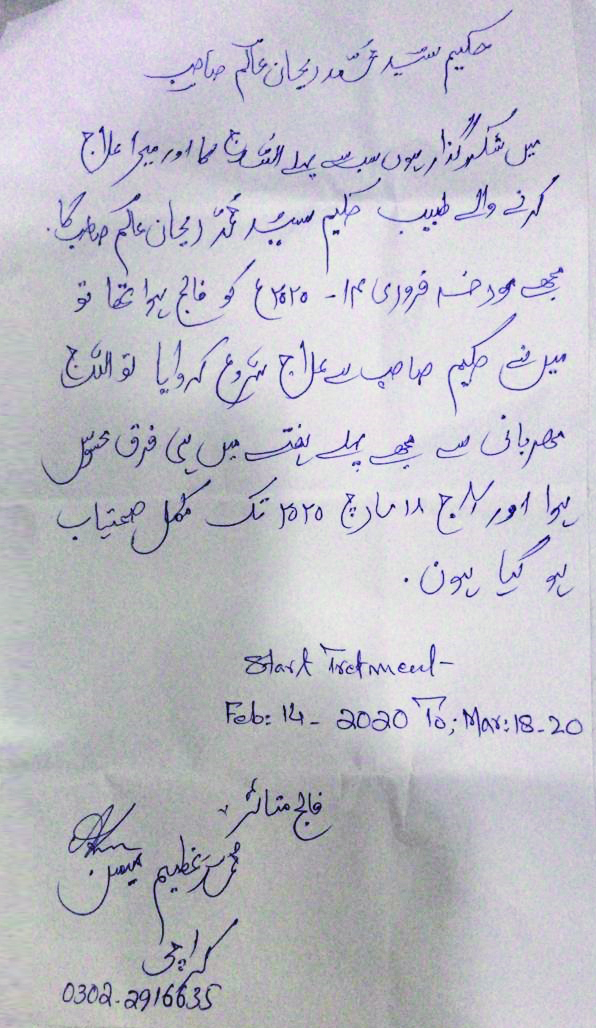 حکیم سید محمد ریحان عالم صاحب
میں شکر گذار ہوں سب سے پہلے اللہ کا اور میرا علاج
کرنے والے طبیب حکیم سید محمد ریحان عالم صاحب کا.
مجھے مورخہ فروری ۱۴ - ۲۰۲۰ع کو فالج ہوا تھا تو
میں نے حکیم صاحب سے علاج شروع کروایا تو اللہ
مہربانی سے مجھے پہلے ہفتے میں ہی فرق محسوس
ہوا اور آج ۱۸ مارچ ۲۰۲۰ تک مکمل صحتیاب
ہو گیا ہون.
Start Tretment -
Feb: 14 - 2020 To; Mar: 18-20
فالج متاثر
محمد عظیم میمن
کراچی
0302-2916635